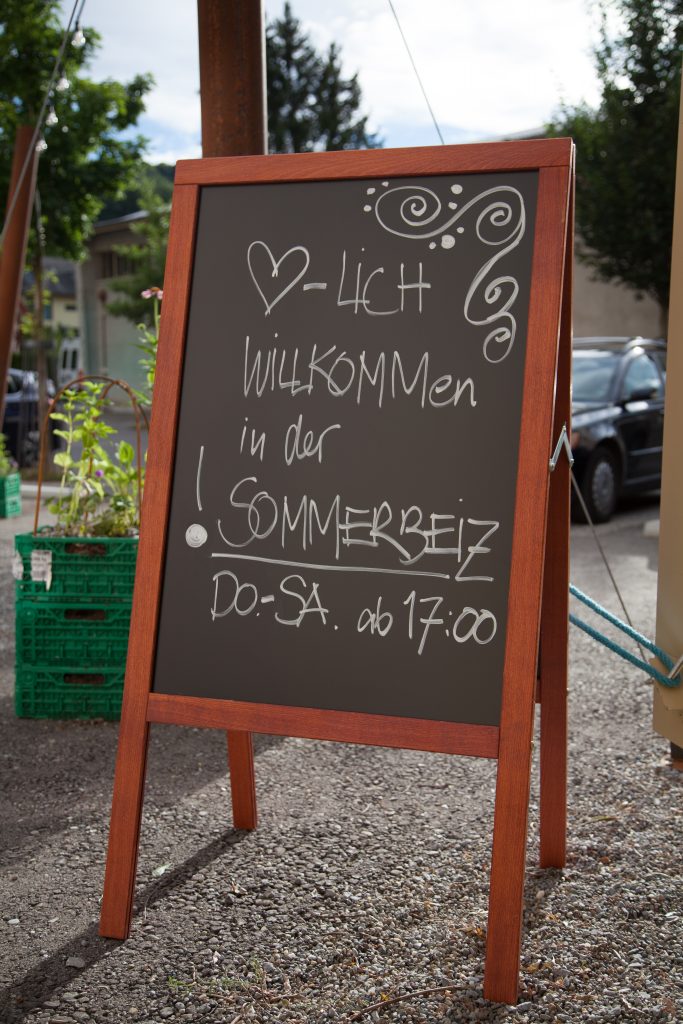 ♡-LICH
WILLKOMMEN
in der
! SOMMERBEIZ
DO.-SA. ab 17:00